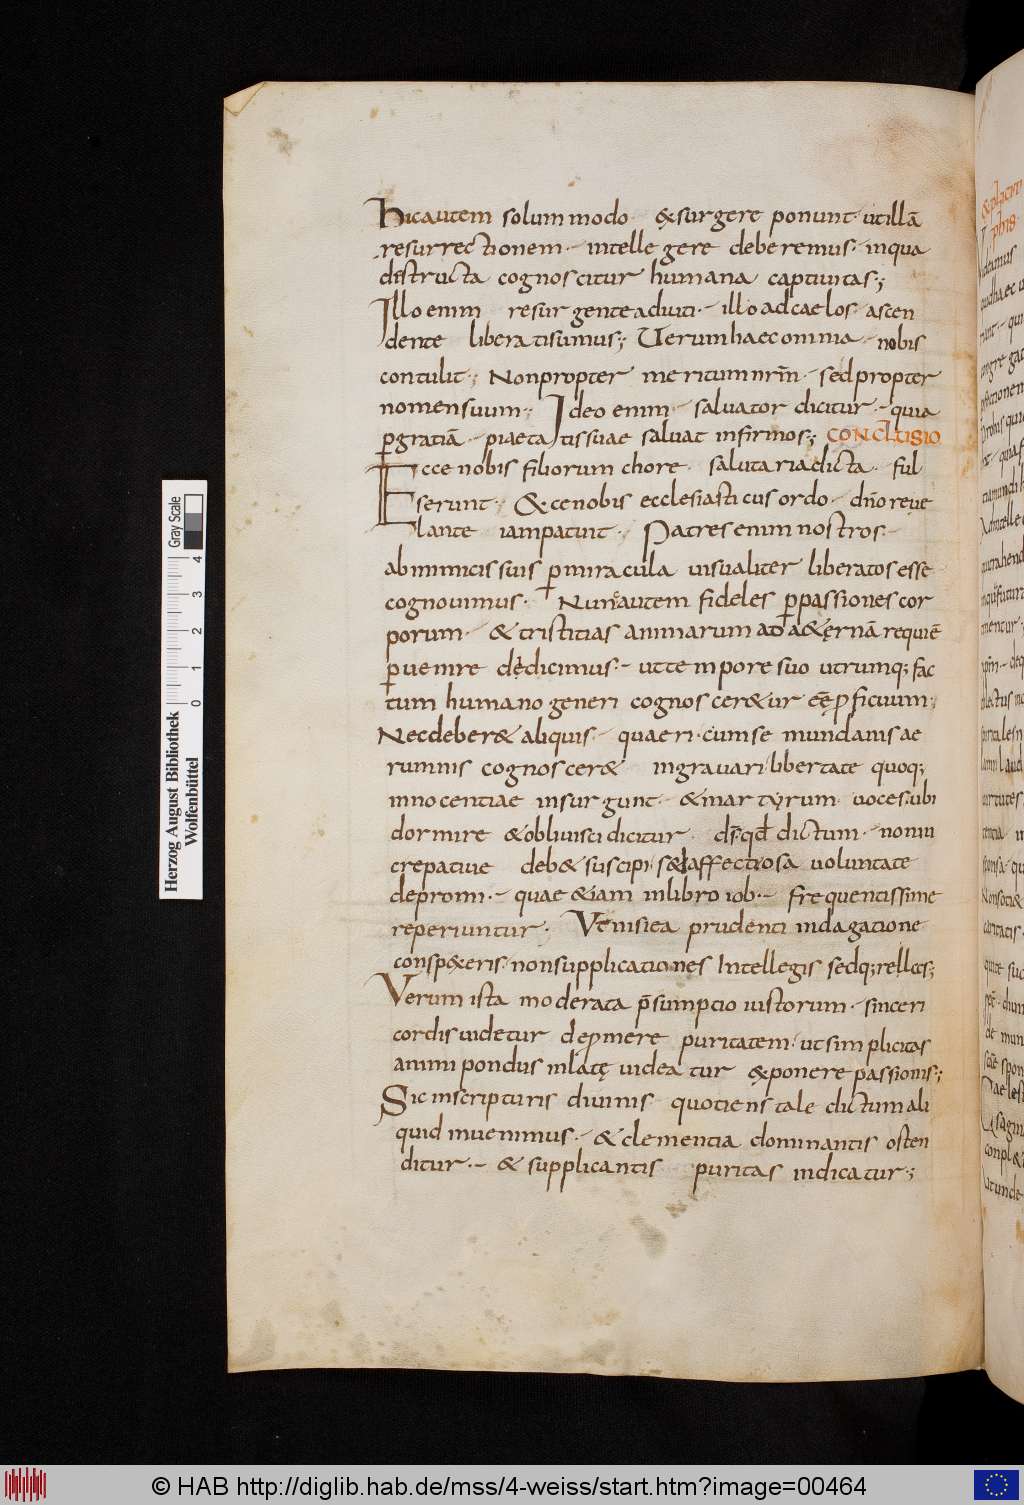 Hicautem solummodo · &surgere ponunt · utillā
resurrectionem · intellegere deberemus · inqua
districta cognoscitur humana captiuitas;
Illo enim resurgente aduiti · illo adcaelos · ascen
dente liberatisumus; Uerumhaecomnia · nobis
contulit; Nonpropter meritumnrm̄ · sedpropter
nomensuum; Ideo enim · saluator dicitur · quia
ꝑgratiā · piaeta tissuae saluat infirmos; CONCLUSIO
Ecce nobis filiorum chore · salutaria dicta · ful
serunt · &cenobis ecclesiasticus ordo · dn̄o reue
lante iampatuit · Patres enim nostros ·
abinimicis suis ꝑmiracula uisualiter liberatos esse
cognouimus · Nuncautem fideles ꝑpassiones cor
porum · & tristitias animarum ad a&ernā requiē
ꝑuenire dedicimus · ut tempore suo utrumq; fac
tum humano generi cognoscer&ur eē ꝓficuum;
Necdeber& aliquis · quaeri · cumse mundanis ae
rumnis cognoscer& ingrauari · libertate quoq;
innocentiae insurgunt · &martyrum uoces · ubi
dormire &obliuisci dicitur · ds̄ · qđ dictum · nonin
crepatiue deb& suscipi · s&affectiosa uoluntate
depromi · quae &iam inlibro iob · frequentissime
reperiuntur; Ut nisiea prudenti indagatione
consp&eris · nonsupplicationes Intellegis sedq;rellas;
Verum ista moderata p̄sumptio iustorum · sinceri
cordis uidetur depmere puritatem · ut simplicitas
animi pondus inlatę uideatur &ponere passionis;
Sic inscripturis diuinis · quotiens tale dictum ali
quid inuenimus · & clementia dominantis osten
ditur · & supplicantis puritas indicatur;
Gray Scale
0 1 2 3 4
Herzog August Bibliothek
Wolfenbüttel
© HAB http://diglib.hab.de/mss/4-weiss/start.htm?image=00464